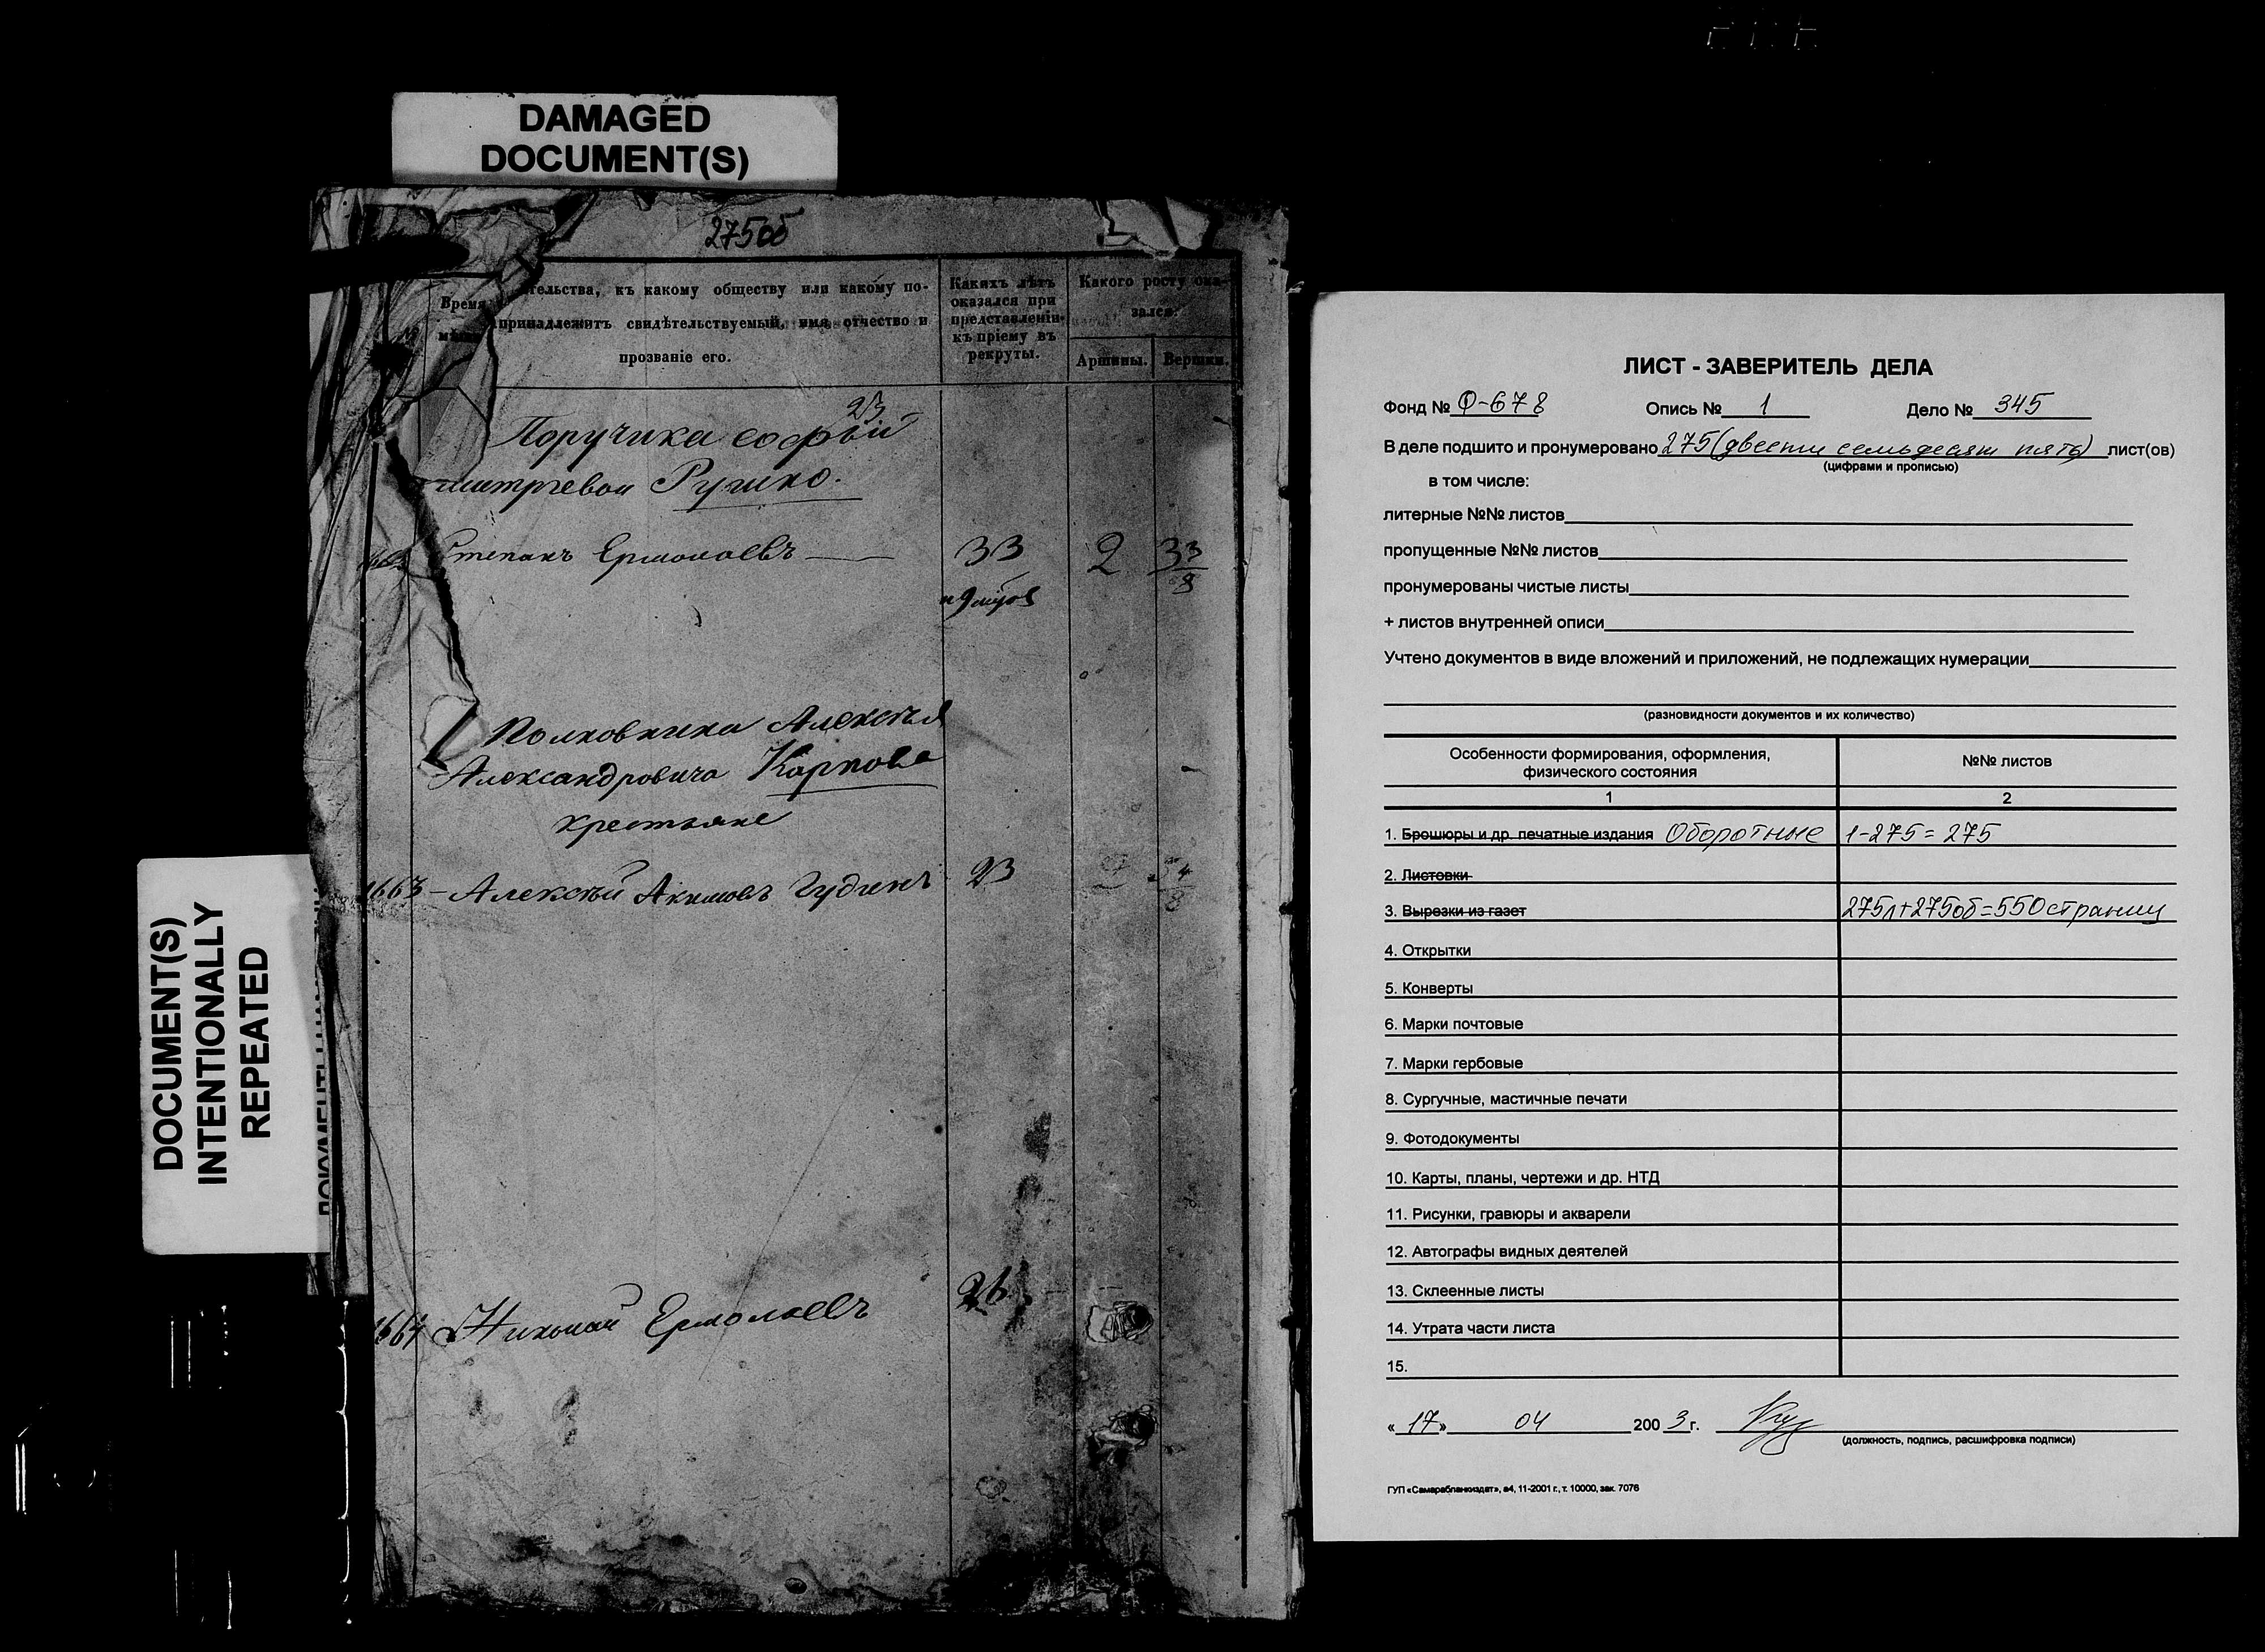 DAMAGED
DOCUMENT(S)
275об
Время
тельства, къ какому обществу или какому по-
принадлежитъ свидѣтельствуемый, имя отчество и
прозваніе его.
Какихъ лѣтъ
оказался при
представленіи
къ пріему въ
рекруты.
Какого росту ока-
зался.
Аршины. Вершки.
23
Поручика софьи
Ругико.
Степанъ Ермолаевъ — 33 2 3 3/8
Полковника Алексѣя
Александровича Карпова
крестьяне
1663 – Алексѣй Акимовъ Гудинъ 23 2 3 4/8
1664 Николай Ермолаевъ 26
DOCUMENT(S)
INTENTIONALLY
REPEATED
ЛИСТ - ЗАВЕРИТЕЛЬ ДЕЛА
Фонд № Ф-678 Опись № 1 Дело № 345
В деле подшито и пронумеровано 275 (двести семьдесят пять) лист(ов)
(цифрами и прописью)
в том числе:
литерные №№ листов
пропущенные №№ листов
пронумерованы чистые листы
+ листов внутренней описи
Учтено документов в виде вложений и приложений, не подлежащих нумерации
(разновидности документов и их количество)
Особенности формирования, оформления,
физического состояния
№№ листов
1 2
1. Брошюры и др. печатные издания Оборотные 1-275 = 275
2. Листовки
3. Вырезки из газет 275л+275об=550страниц
4. Открытки
5. Конверты
6. Марки почтовые
7. Марки гербовые
8. Сургучные, мастичные печати
9. Фотодокументы
10. Карты, планы, чертежи и др. НТД
11. Рисунки, гравюры и акварели
12. Автографы видных деятелей
13. Склеенные листы
14. Утрата части листа
15.
«17» 04 2003г.
(должность, подпись, расшифровка подписи)
ГУП «Самарабланкиздат», а4, 11-2001 г., т. 10000, зак. 7076